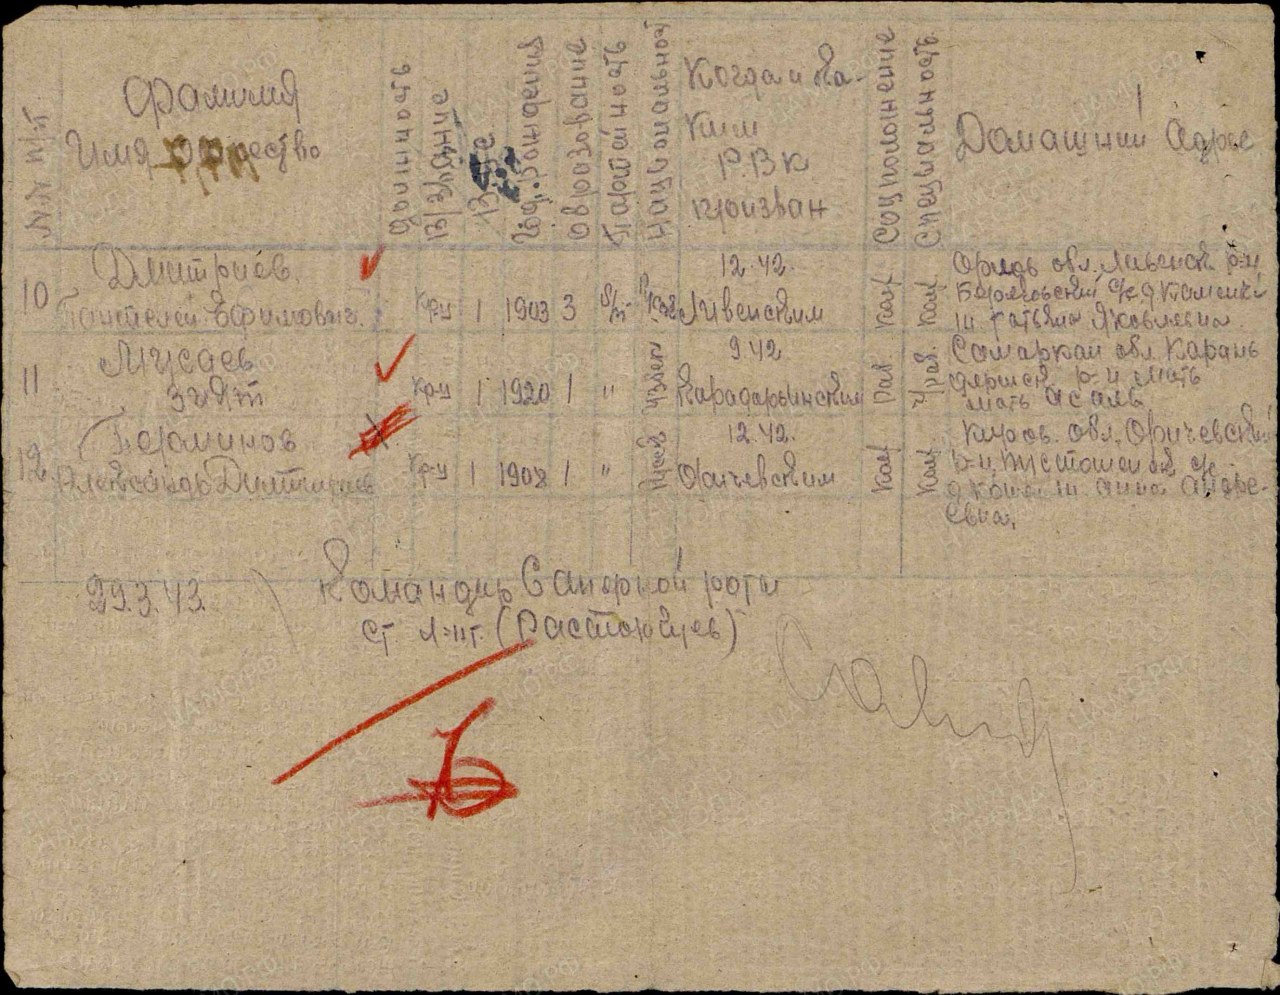 №№ п/п
Фамилия
Имя отчество
В/звание
Год рождения
Образование
Партийность
Национальность
Когда и ка-
ким
Р.В.К
призван
Соц положение
Специальность
Домашний Адрес
10
Дмитриев
Пантелей Ефимович
Кр-ц
1
1903
3
б/п
12.42.
Ливенским
Кол
Кол
Орловь обл. Ливенск р-н
Татьяна Яковлевна
11
Мусаев
Зият
Кр-ц
1
1920
1
"
Узбек
9 42.
Карадарьинским
Самаркан обл Карань
даринск р-н мать
12
Перминов
Александр Дмитриев
Кр-ц
1
1908
1
"
12.42.
Оричевским
Кол
Кол
Киров. обл. Оричевский
ж. Анна Андре-
евна.
29.3.43.
Командир Саперной роты
ст л-нт. (Растоскуев)